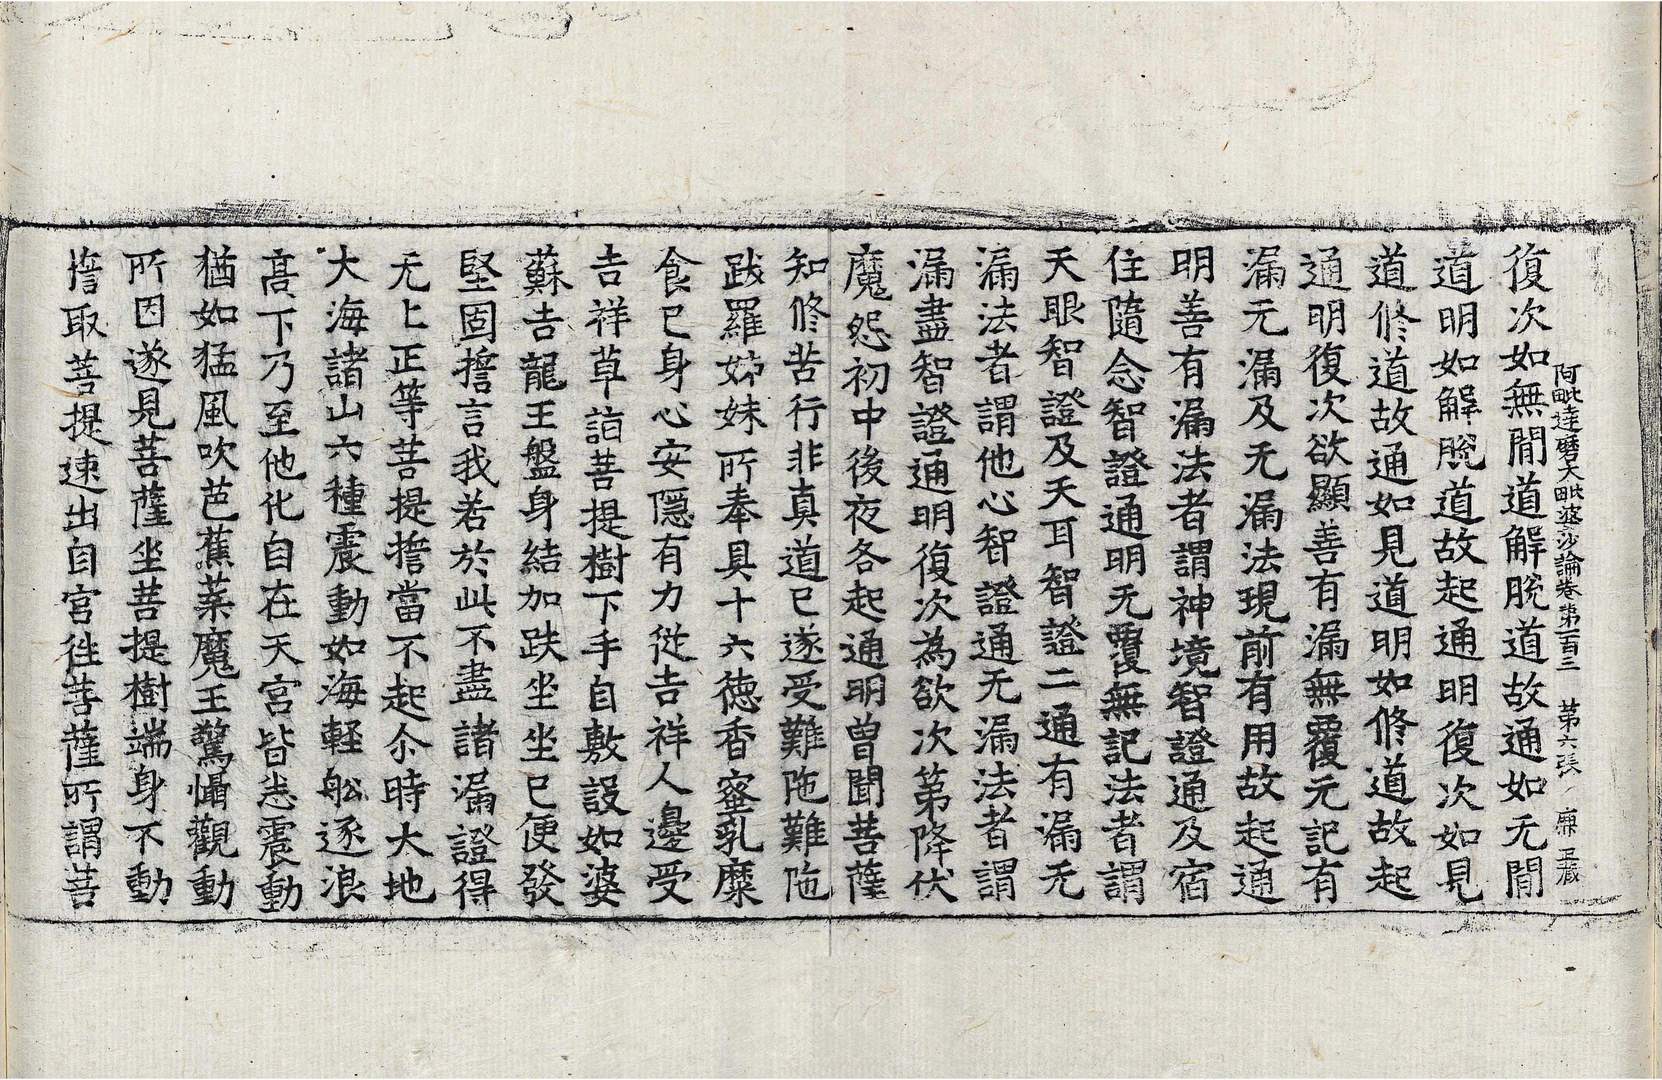 阿毗達磨大毗婆沙論卷第一百三　第六張　廉
復次如無間道解脫道故通如无間
道明如解脫道故起通明復次如見
道修道故通如見道明如修道故起
通明復次欲顯善有漏無覆无記有
漏无漏及无漏法現前有用故起通
明善有漏法者謂神境智證通及宿
住隨念智證通明无覆無記法者謂
天眼智證及天耳智證二通有漏无
漏法者謂他心智證通无漏法者謂
漏盡智證通明復次為欲次第降伏
魔怨初中後夜各起通明曾聞菩薩
知修苦行非真道已遂受難陁難陁
跋羅姊妹所奉具十六德香蜜乳糜
食已身心安隱有力從吉祥人邊受
吉祥草詣菩提樹下手自敷設如婆
蘇吉龍王盤身結加趺坐坐已便發
堅固擔言我若於此不盡諸漏證得
无上正等菩提擔當不起尒時大地
大海諸山六種震動如海輕舩逐浪
高下乃至他化自在天宮皆悉震動
猶如猛風吹芭蕉葉魔王驚懾觀動
所因遂見菩薩坐菩提樹端身不動
擔取菩提速出自宮往菩薩所謂菩